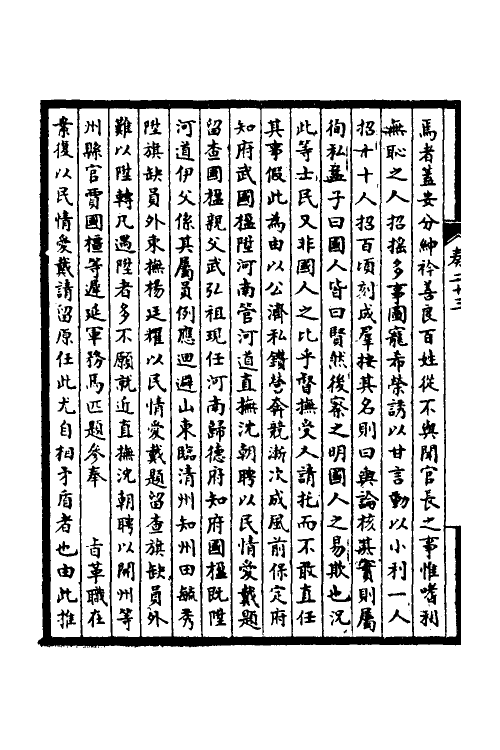 卷二十三
焉者蓋安分紳衿善良百姓從不與聞官長之事惟嗜利
無恥之人招搖多事圖寵希榮誘以甘言動以小利一人
招十十人招百頃刻成羣按其名則曰輿論核其實則屬
徇私孟子曰國人皆曰賢然後察之明國人之易欺也況
此等士民又非國人之比乎督撫受人請託而不敢直任
其事假此為由以公濟私鑽營奔競漸次成風前保定府
知府武國楹陞河南管河道直撫沈朝聘以民情愛戴題
留查國楹親父武弘祖現任河南歸德府知府國楹既陞
河道伊父係其屬員例應迴避山東臨清州知州田敏秀
陞旗缺員外東撫楊廷耀以民情愛戴題留查旗缺員外
難以陞轉凡遇陞者多不願就近直撫沈朝聘以開州等
州縣官賈國檀等遲延軍務馬匹題參奉　旨革職在
案復以民情愛戴請留原任此尤自相矛盾者也由此推